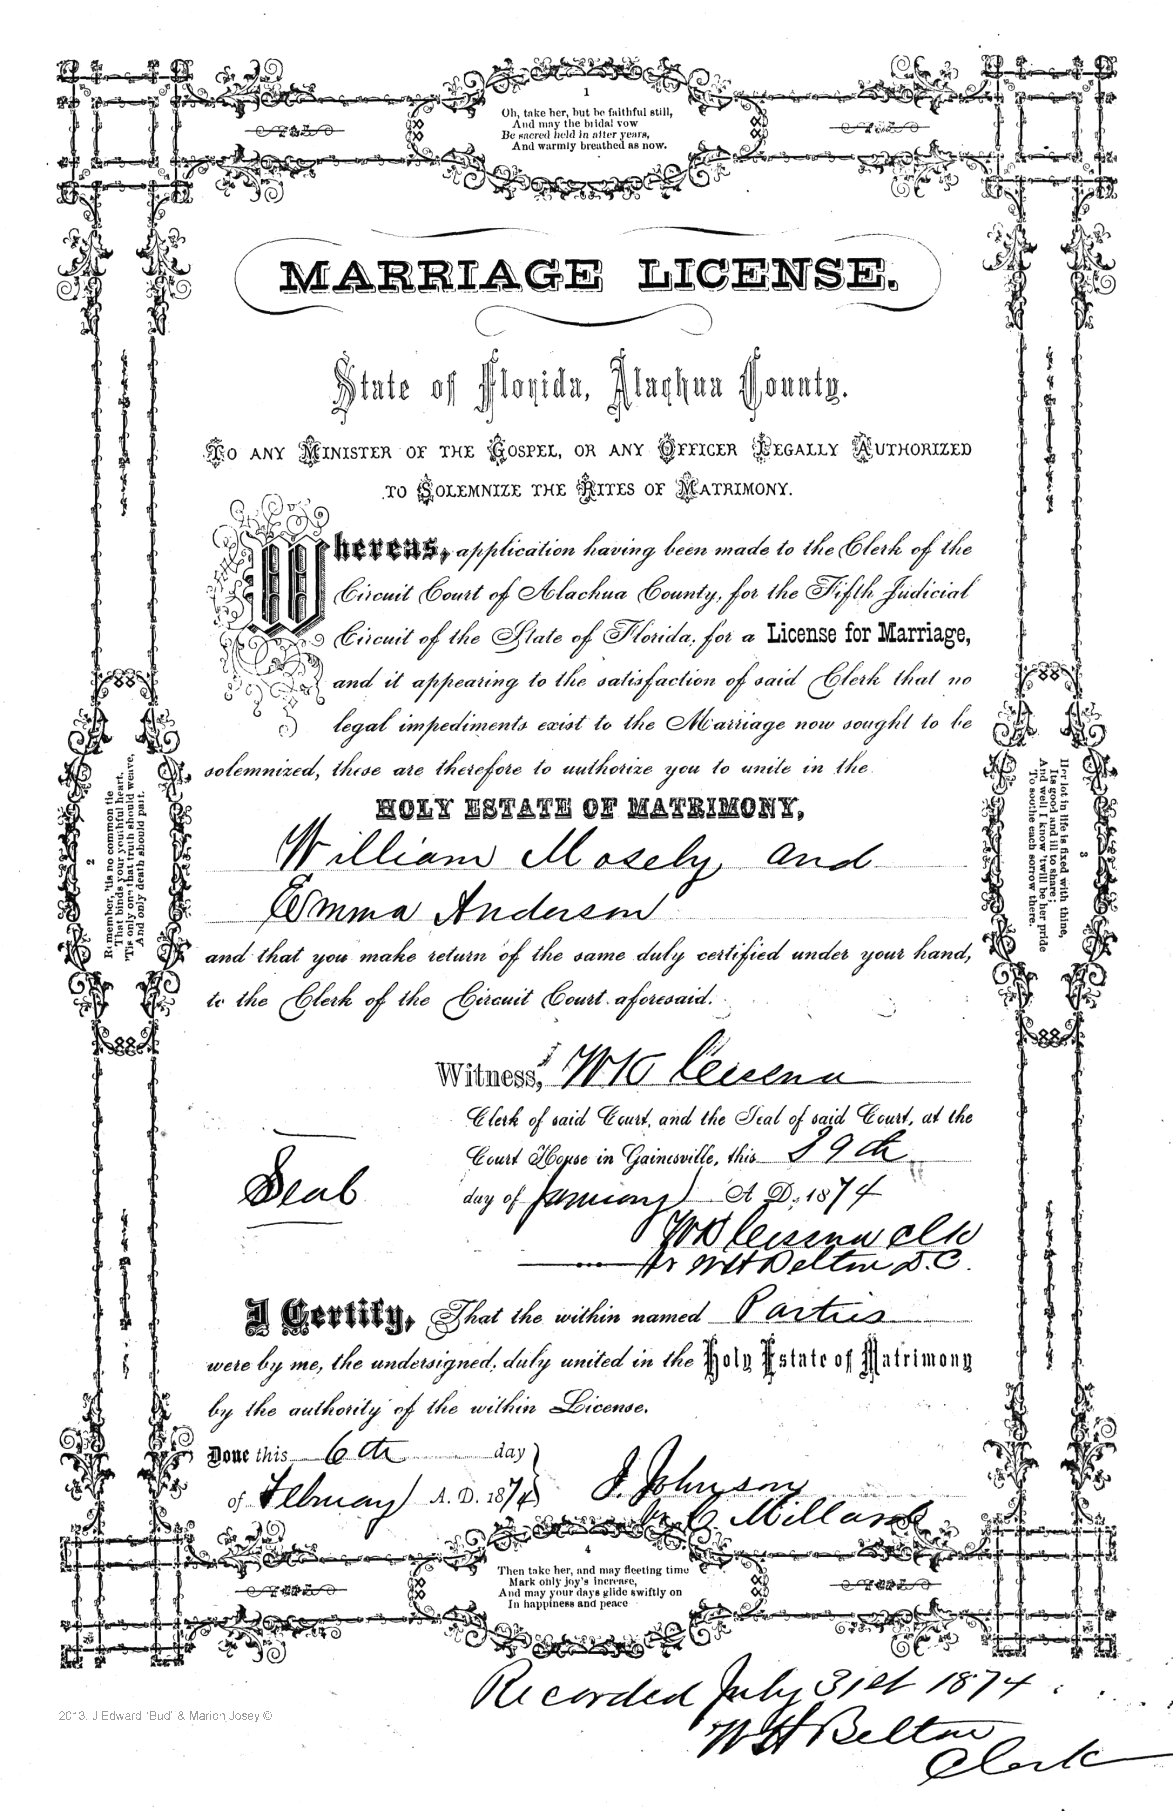 1
Oh, take her, but be faithful still,
And may the bridal vow
Be sacred held in after years,
And warmly breathed as now.
MARRIAGE LICENSE.
State of Florida, Alachua County.
TO ANY MINISTER OF THE GOSPEL, OR ANY OFFICER LEGALLY AUTHORIZED
TO SOLEMNIZE THE RITES OF MATRIMONY.
Whereas, application having been made to the Clerk of the
Circuit Court of Alachua County, for the Fifth Judicial
Circuit of the State of Florida, for a License for Marriage,
and it appearing to the satisfaction of said Clerk that no
legal impediments exist to the Marriage now sought to be
solemnized, these are therefore to authorize you to unite in the
HOLY ESTATE OF MATRIMONY,
William Mosely and
Emma Anderson
and that you make return of the same duly certified under your hand,
to the Clerk of the Circuit Court aforesaid.
2
Remember, 'tis no common tie
That binds your youthful heart,
'Tis only one that truth should weave,
And only death should part.
3
Her lot in life is fixed with thine,
Its good and ill to share;
And well I know 'twill be her pride
To soothe each sorrow there.
Witness, WK Cessna
Clerk of said Court, and the Seal of said Court, at the
Court House in Gainesville, this 29th
Seal
day of January A D, 1874
WK Cessna Clk
WH Belton D.C.
I Certify, That the within named Parties
were by me, the undersigned, duly united in the Holy Estate of Matrimony
by the authority of the within License.
Done this 6th day
of February A. D. 1874
J. Johnson
4
Then take her, and may fleeting time
Mark only joy's increase,
And may your days glide swiftly on
In happiness and peace
Recorded July 31st 1874
WH Belton
Clerk
2013. J Edward 'Bud' & Marion Josey ©